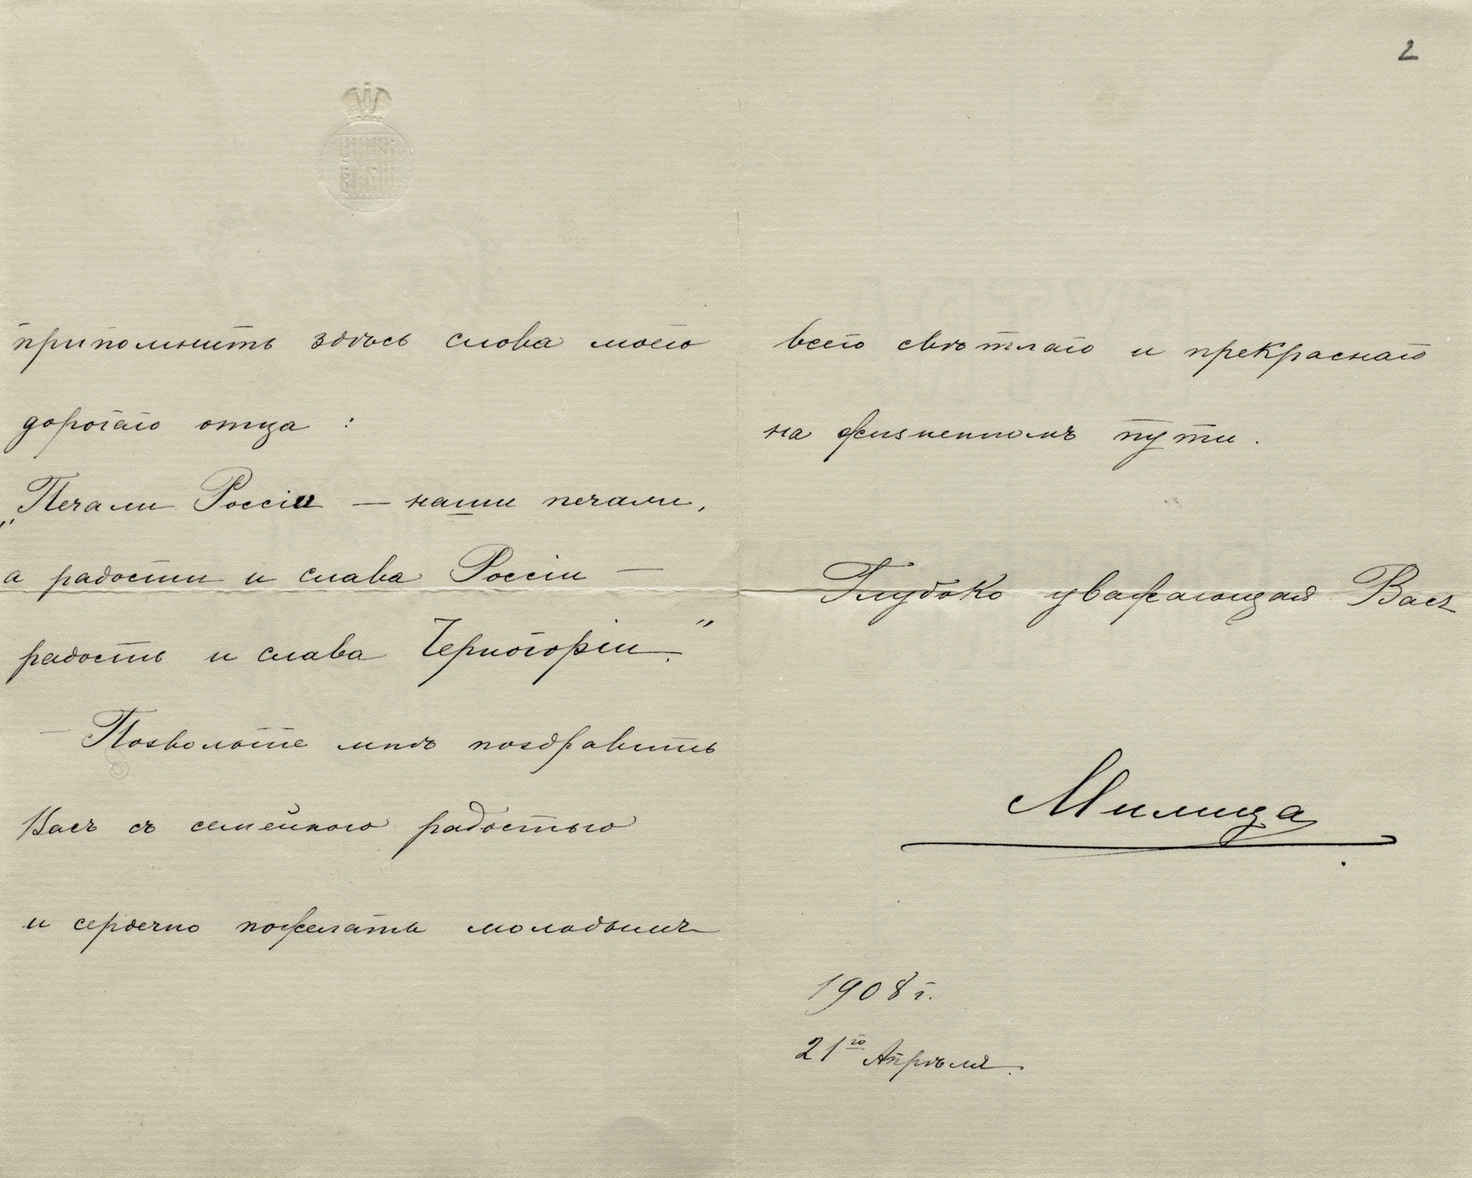 2
припомнить здѣсь слова моего
дорогаго отца :
„Печали Россiи — наши печали,
а радости и слава Россiи —
радость и слава Черногорiи."
— Позвольте мнѣ поздравить
Васъ съ семейною радостью
и сердечно пожелать молодымъ
всего свѣтлаго и прекраснаго
на жизненномъ пути.
Глубоко уважающая Васъ
Милица
1908 г.
21го Апрѣля.